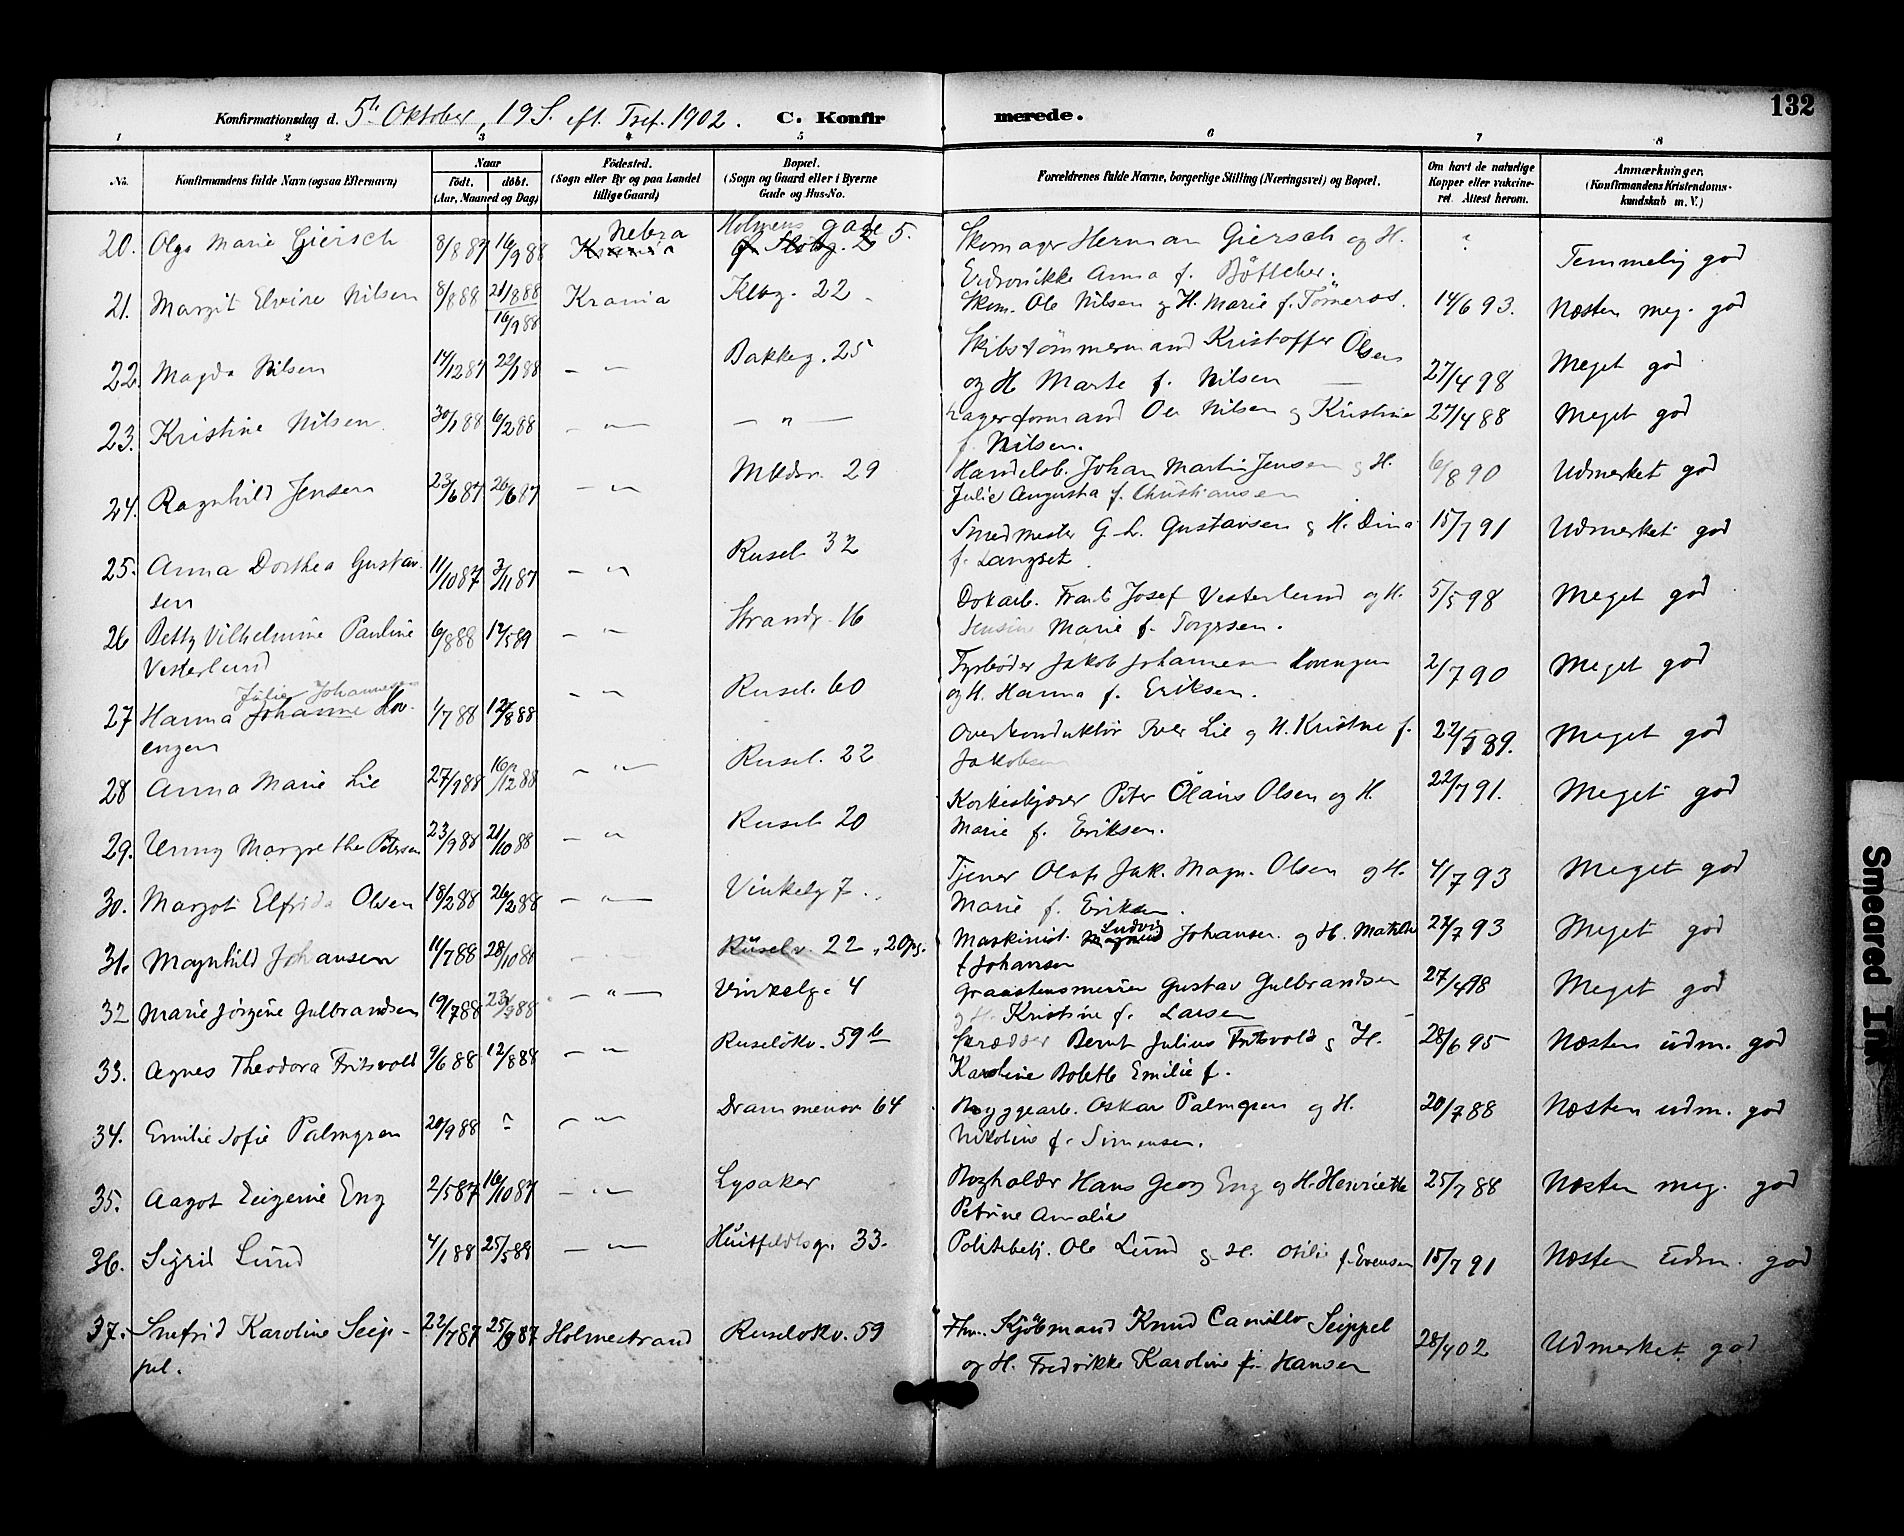 132
Konfirmationsdag d. 5te Oktober, 19 S. eft. Tref. 1902. C. Konfirmerede.
1 2 3 4 5 6 7 8
No.
Konfirmandens fulde Navn (ogsaa Efternavn)
Naar
födt. döbt.
(Aar, Maaned og Dag)
Födested.
(Sogn eller By og paa Landet tillige Gaard)
Bopæl.
(Sogn og Gaard eller i Byerne Gade og Hus-No.
Forældrenes fulde Navne, borgerlige Stilling (Næringsvei) og Bopæl.
Om havt de naturlige Kopper eller vakcineret. Attest herom.
Anmærkninger.
(Konfirmandens Kristendomskundskab m. V.)
20. Olga Marie Giersch 8/8 87 16/9 88 Nebra Holmens gade 5. Skomager Herman Giersch og H. ? Temmelig god
Anna f. Böttcher.
21. Margit Elvine Nilsen 8/8 88 21/8 88 Krania Klbg. 22 Skom. Ole Nilsen og H. Marie f. Tömeraas. 14/6 93. Næsten meg. god
16/9 88
22. Magda Nilsen 14/12 87 22/1 88 — " — Bakkeg. 25 Skibstömmermand Kristoffer Olsen
og H Marte f. Nilsen 27/4 98 Meget god
23. Kristine Nilsen 30/1 88 6/2 88 — " — — " — Lagerformand Ole Nilsen og Kristine 27/4 88 Meget god
f. Nilsen.
24. Ragnhild Jensen 23/6 87 26/6 87 — " — Mkdsv. 29 Handelsb. Johan Martin Jensen og H. 6/8 90 Udmerket god
Julie Augusta f. Christiansen
25. Anna Dorthea Gustav- 11/10 87 3/11 87 — " — Rusel. 32 Smedmester G. L. Gustavsen og H. Dina 15/7 91 Udmerket god
sen f. Langset.
26 Betty Vilhelmine Pauline 6/8 88 12/5 89 — " — Strandg. 16 Dokarb. Frants Josef Vesterlund og H. 5/5 98 Meget god
Vesterlund Jensine Marie f. Torgersen.
Julie Johannesen
27 Hanna Johanne Hov- 1/7 88 12/8 88 — " — Rusel. 60 Fyrböder Jakob Johannesen Hovengen 2/7 90 Meget god
engen og H. Hanna f. Eriksen.
28 Anna Marie Lie 27/9 88 16/12 88 — " — Rusel. 22 Overkonduktör Iver Lie og H. Kristine f. 22/5 89. Meget god
Jakobsen
29. Unny Margrethe Petersen 23/9 88 21/10 88 — " — Rusel. 20 Korkeskjærer Peter Olaus Olsen og H. 22/7 91. Meget god
Marie f. Eriksen.
30. Margot Elfrida Olsen 18/2 88 26/2 88 — " — Vinkelg 7. Tjener Olaf Jak. Magn. Olsen og H. 4/7 93 Meget god
Marie f. Eriksen.
31. Magnhild Johansen 11/7 88 28/10 88 Ruselv. 22, 20 pg. Maskinist Ludvig Johansen og H. Matilde 24/7 93 Meget god
f Johansen
32 Marie Jörgine Gulbrandsen 19/7 88 23/9 88 — " — Vinkelg. 4 Graastensminer Gustav Gulbrandsen 27/4 98 Meget god
og H. Kristine f. Larsen
33. Agnes Theodora Fritsvold 9/6 88 12/8 88 — " — Ruselökv. 59 b Skrædder Bernt Julius Fritsvold og H. 28/6 95 Næsten udm. god
Karoline Bolette Emilie f.
34. Emilie Sofie Palmgren 20/9 88 ? — " — Drammensv 64 Bryggearb. Oskar Palmgren og H. 20/7 88 Næsten udm. god
Nikoline f. Simensen.
35. Aagot Eugenie Eng 2/5 87 16/10 87 — " — Lysaker Bogholder Hans Georg Eng og H. Henriette 25/7 88 Næsten meg. god
Petrine Amalie
36. Sigrid Lund 4/1 88 25/5 88 — " — Huitfeldtsg. 33. Politibetj. Ole Lund og H. Otilie f. Evensen 15/7 91 Næsten udm. god
37. Snefrid Karoline Seip- 22/7 87 25/9 87 Holmestrand Ruselökv. 59 Fhv. Kjöbmand Knud Camillo Seippel 28/4 02 Udmerket god
pel. og H. Fredrikke Karoline f. Hansen
Smeared Ink